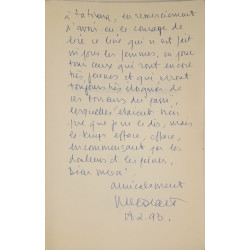 à Tatiana, en remerciement
d'avoir eu le courage de
lire ce livre qui n'est fait
ni pour les femmes, ni pour
tous ceux qui sont encore
très jeunes et qui seront
toujours très éloignés de
ces terreurs du passé,
lesquelles étaient
que que je le dis, mais
le temps efface, efface,
en commençant par les
douleurs et les peines,
amicalement
19.2.93.